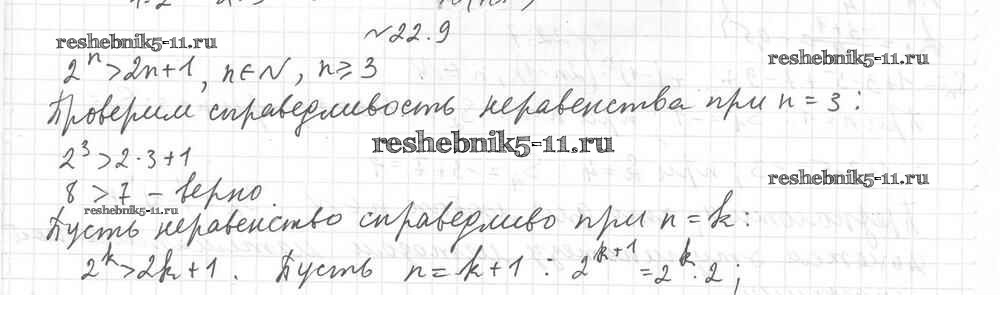 №22.9
reshebnik5-11.ru
reshebnik5-11.ru
2ⁿ>2n+1, n∈N, n≥3
Проверим справедливость неравенства при n=3:
reshebnik5-11.ru
2³>2·3+1
8>7 – верно.
reshebnik5-11.ru
reshebnik5-11.ru
Пусть неравенство справедливо при n=k:
2ᵏ>2k+1. Пусть n=k+1: 2ᵏ⁺¹=2ᵏ·2;